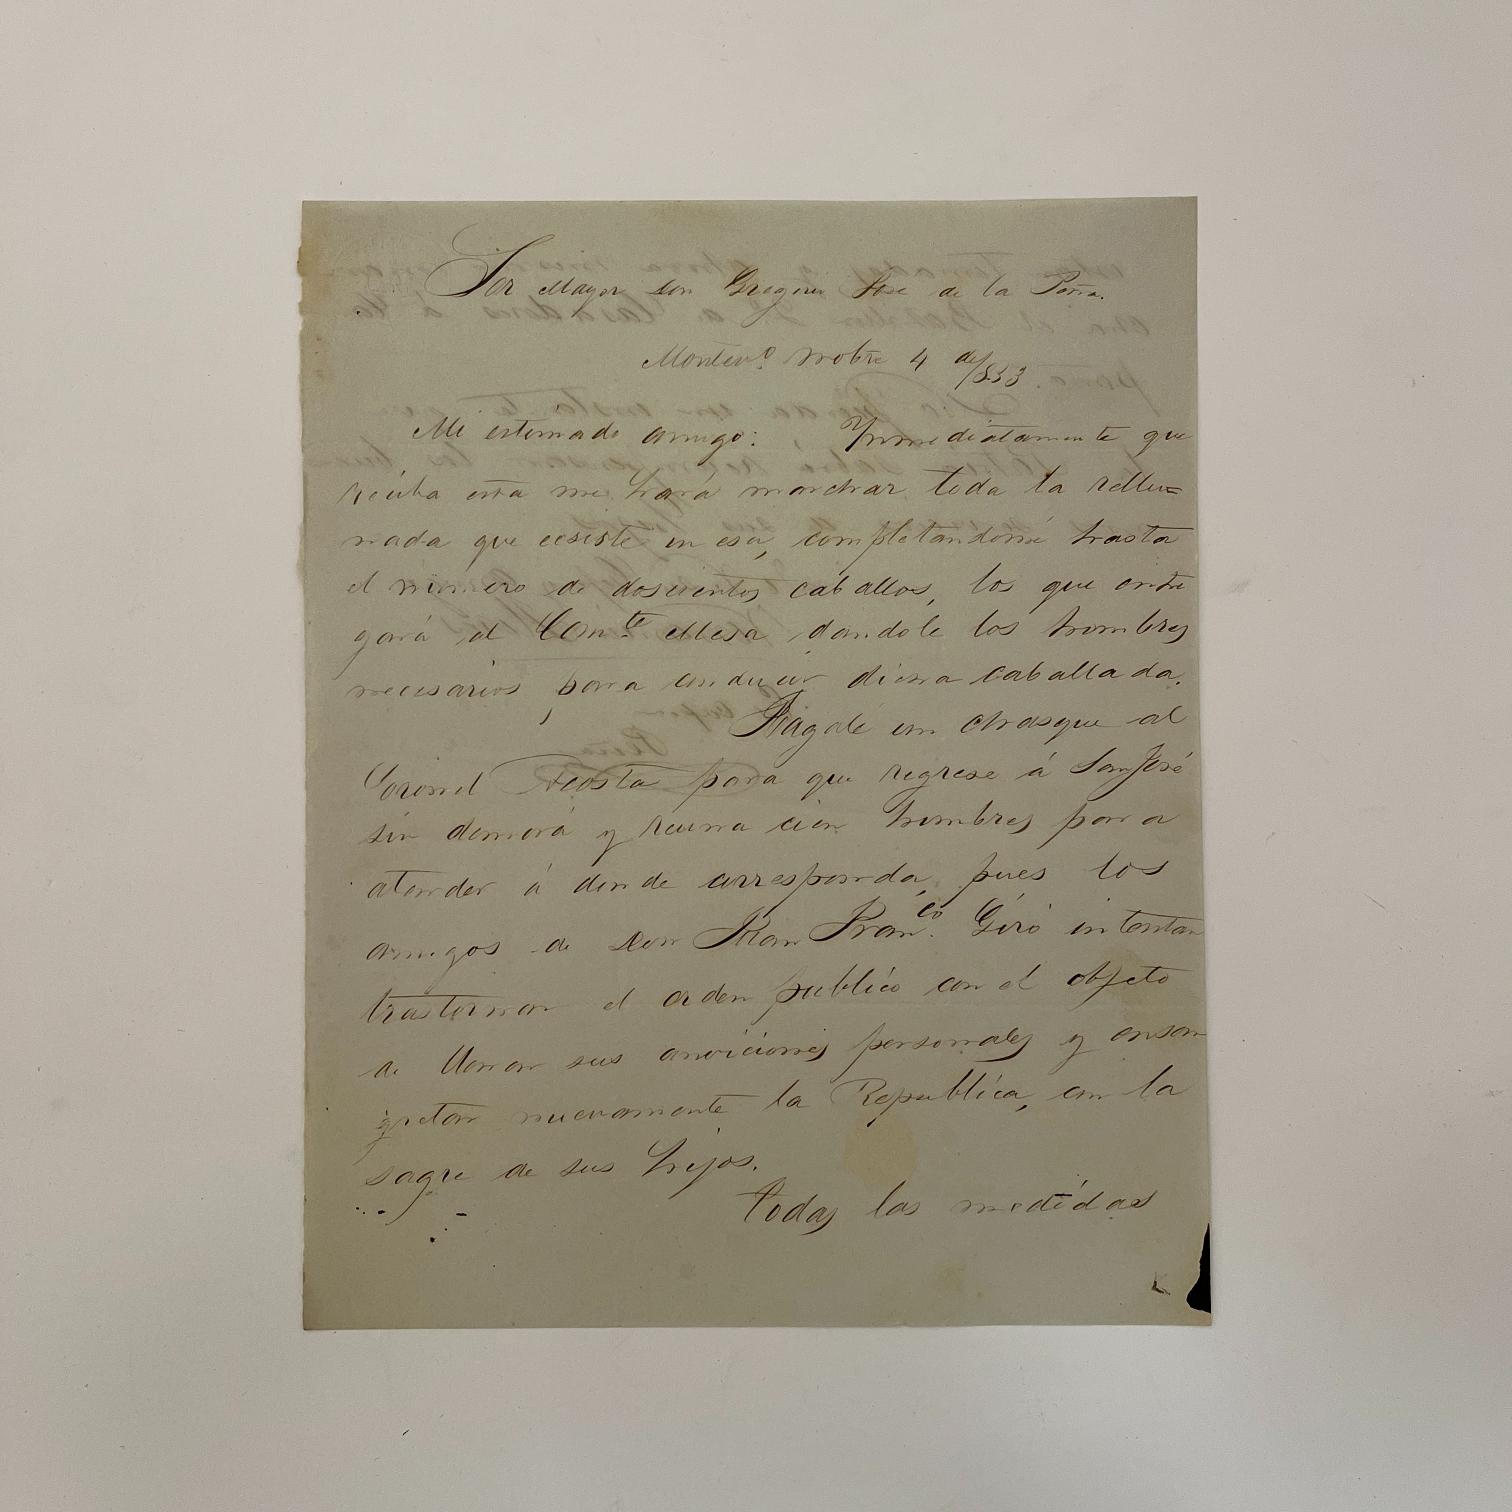 Sor Mayor don Gregorio José de la Peña.
Montevo. Nobre 4 de/853
Mi estimado amigo: Ynmediatamente que
reciba esta me hará marchar toda la rellu=
nada que ecsiste en esa, completandomé hasta
el número de doscientos caballos, los que entre
gará al Comte. Mesa dandole los hombres
necesarios para conducir dicha caballada.
Hagalé un chasque al
Coronel Acosta para que regrese á San José
sin demorá y reuna cien hombres para
atender á donde corresponda, pues los
amigos de Don Juan Franco. Giró intentan
trastornar el orden publico con el objeto
de llenar sus anviciones personales y ensan
gretar nuevamente la Republica, con la
sagre de sus hijos.
Todas las medidas